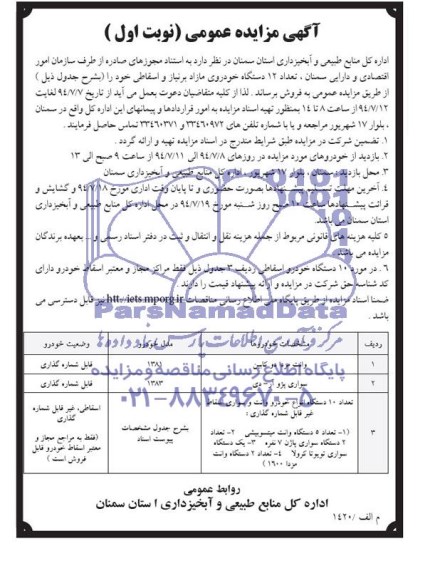 آگهی مزایده عمومی (نوبت اول )
اداره کل منابع طبیعی و آبخیزداری استان سمنان در نظر دارد به استناد مجوزهای صادره از طرف سازمان امور
اقتصادی و دارایی سمنان ، تعداد ۱۲ دستگاه خودروی مازاد برنیاز و اسقاطی خود را (بشرح جدول ذیل )
از طریق مزایده عمومی به فروش برساند . لذا از کلیه متقاضیان دعوت بعمل می آید از تاریخ ۹۴/۷/۷ لغایت
۹۴/۷/۱۲ از ساعت ۸ تا ۱۴ بمنظور تهیه اسناد مزایده به امور قراردادها و پیمانهای این اداره کل واقع در سمنان
، بلوار ۱۷ شهریور مراجعه و یا با شماره تلفن های ۳۳۴۶۰۹۷۲ و ۳۳۴۶۰۳۷۱ تماس حاصل فرمایند .
۱. تضمین شرکت در مزایده طبق شرایط مندرج در اسناد مزایده تهیه و ارائه گردد .
۲. بازدید از خودروهای مورد مزایده در روزهای ۹۴/۷/۸ الی ۹۴/۷/۱۱ از ساعت ۹ صبح الی ۱۳
۳. محل بازدید : سمنان ، بلوار ۱۷ شهریور ، اداره کل منابع طبیعی و آبخیزداری سمنان
۴. آخرین مهلت تسلیم پیشنهادها بصورت حضوری و تا پایان وقت اداری مورخ ۹۴/۷/۱۸ و گشایش و
قرائت پیشنهادها ساعت ۱۰ صبح روز شنبه مورخ ۹۴/۷/۱۹ در محل اداره کل منابع طبیعی و آبخیزداری
استان سمنان می باشد.
۵ کلیه هزینه های قانونی مربوط از جمله هزینه نقل و انتقال و ثبت در دفتر اسناد رسمی و ... بعهده برندگان
مزایده می باشد .
۶. در مورد ۱۰ دستگاه خودرو اسقاطی ردیف ۳ جدول ذیل فقط مراکز مجاز و معتبر اسقاط خودرو دارای
کد شناسه حق شرکت در مزایده و ارائه پیشنهاد قیمت را دارند
ضمنا اسناد مزایده از طریق پایگاه ملی اطلاع رسانی مناقصات http//iets.mporg.ir نیز قابل دسترسی می
باشد .
ردیف مشخصات خودروها مدل خودرو وضعیت خودرو
۱ وانت مزدا دو کابین ۱۳۸۱ قابل شماره گذاری
۲ سواری پژو آر - دی ۱۳۸۳ قابل شماره گذاری
۳ تعداد ۱۰ دستگاه انواع خودرو وانت و سواری اسقاط
غیر قابل شماره گذاری :
(۱- تعداد ۵ دستگاه وانت میتسوبیشی ۲- تعداد
۲ دستگاه سواری پاژن ۷ نفره ۳- یک دستگاه
سواری تویوتا کرولا ۴- تعداد ۲ دستگاه وانت
مزدا ۱۶۰۰ )
بشرح جدول مشخصات
پیوست اسناد
اسقاطی، غیر قابل شماره
گذاری
(فقط به مراجع مجاز و
معتبر اسقاط خودرو قابل
فروش است )
روابط عمومی
اداره کل منابع طبیعی و آبخیزداری استان سمنان
م الف /۱۴۲۰
ParsNamadData
مرکز فرآوری اطلاعات پارس نماد داده ها
پایگاه اطلاع رسانی مناقصه و مزایده
۰۲۱-۸۸۳۴۹۶۷۰-۵